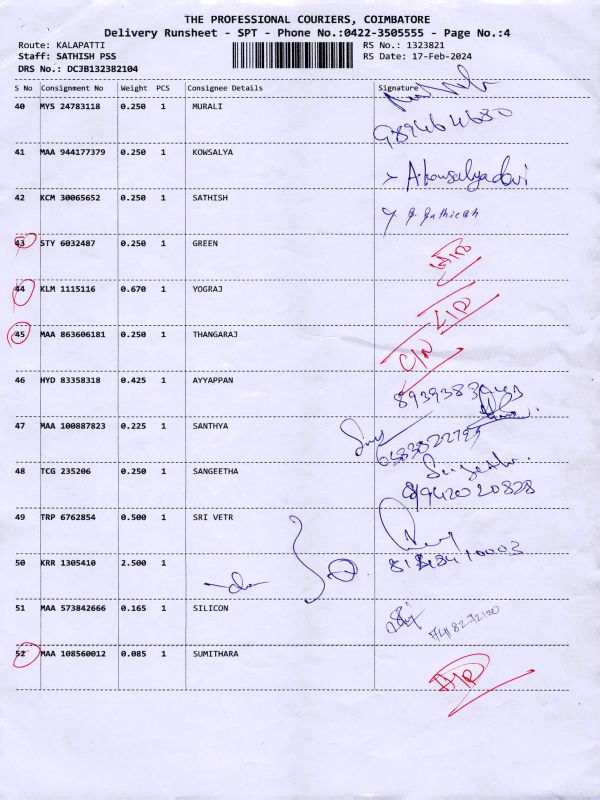 THE PROFESSIONAL COURIERS, COIMBATORE
Delivery Runsheet - SPT - Phone No.:0422-3505555 - Page No.:4
Route: KALAPATTI RS No.: 1323821
Staff: SATHISH PSS RS Date: 17-Feb-2024
DRS No.: DCJB132382104
S No Consignment No Weight PCS Consignee Details Signature
40 MYS 24783118 0.250 1 MURALI
41 MAA 944177379 0.250 1 KOWSALYA A.kowsalyadevi
42 KCM 30065652 0.250 1 SATHISH
43 STY 6032487 0.250 1 GREEN
44 KLM 1115116 0.670 1 YOGRAJ
45 MAA 863606181 0.250 1 THANGARAJ C/N
46 HYD 83358318 0.425 1 AYYAPPAN
47 MAA 100887823 0.225 1 SANTHYA
48 TCG 235206 0.250 1 SANGEETHA
49 TRP 6762854 0.500 1 SRI VETR
50 KRR 1305410 2.500 1
51 MAA 573842666 0.165 1 SILICON
52 MAA 108560012 0.085 1 SUMITHARA